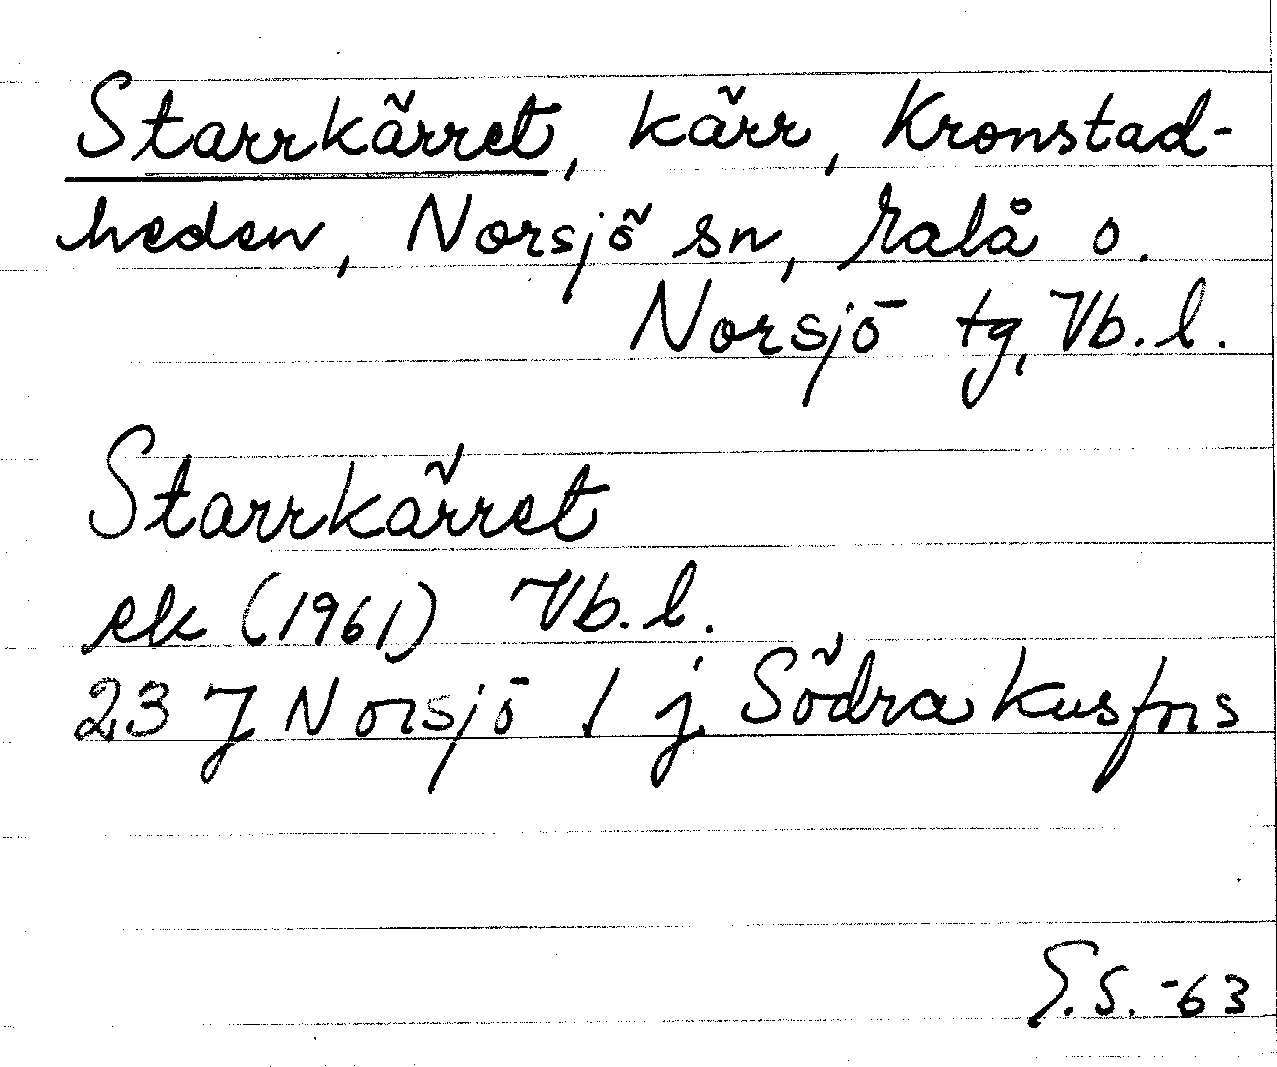 Starrkärret, kärr, Kronstad-
heden, Norsjö sn, Malå o.
Norsjö tg, Vb. l.
Starrkärret
ek (1961) Vb. l.
23 J Norsjö 1 j Södra Kusfors
S.S. -63